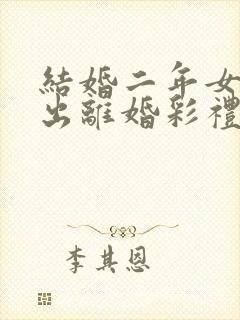 結婚二年女
出離婚彩禮
李其恩